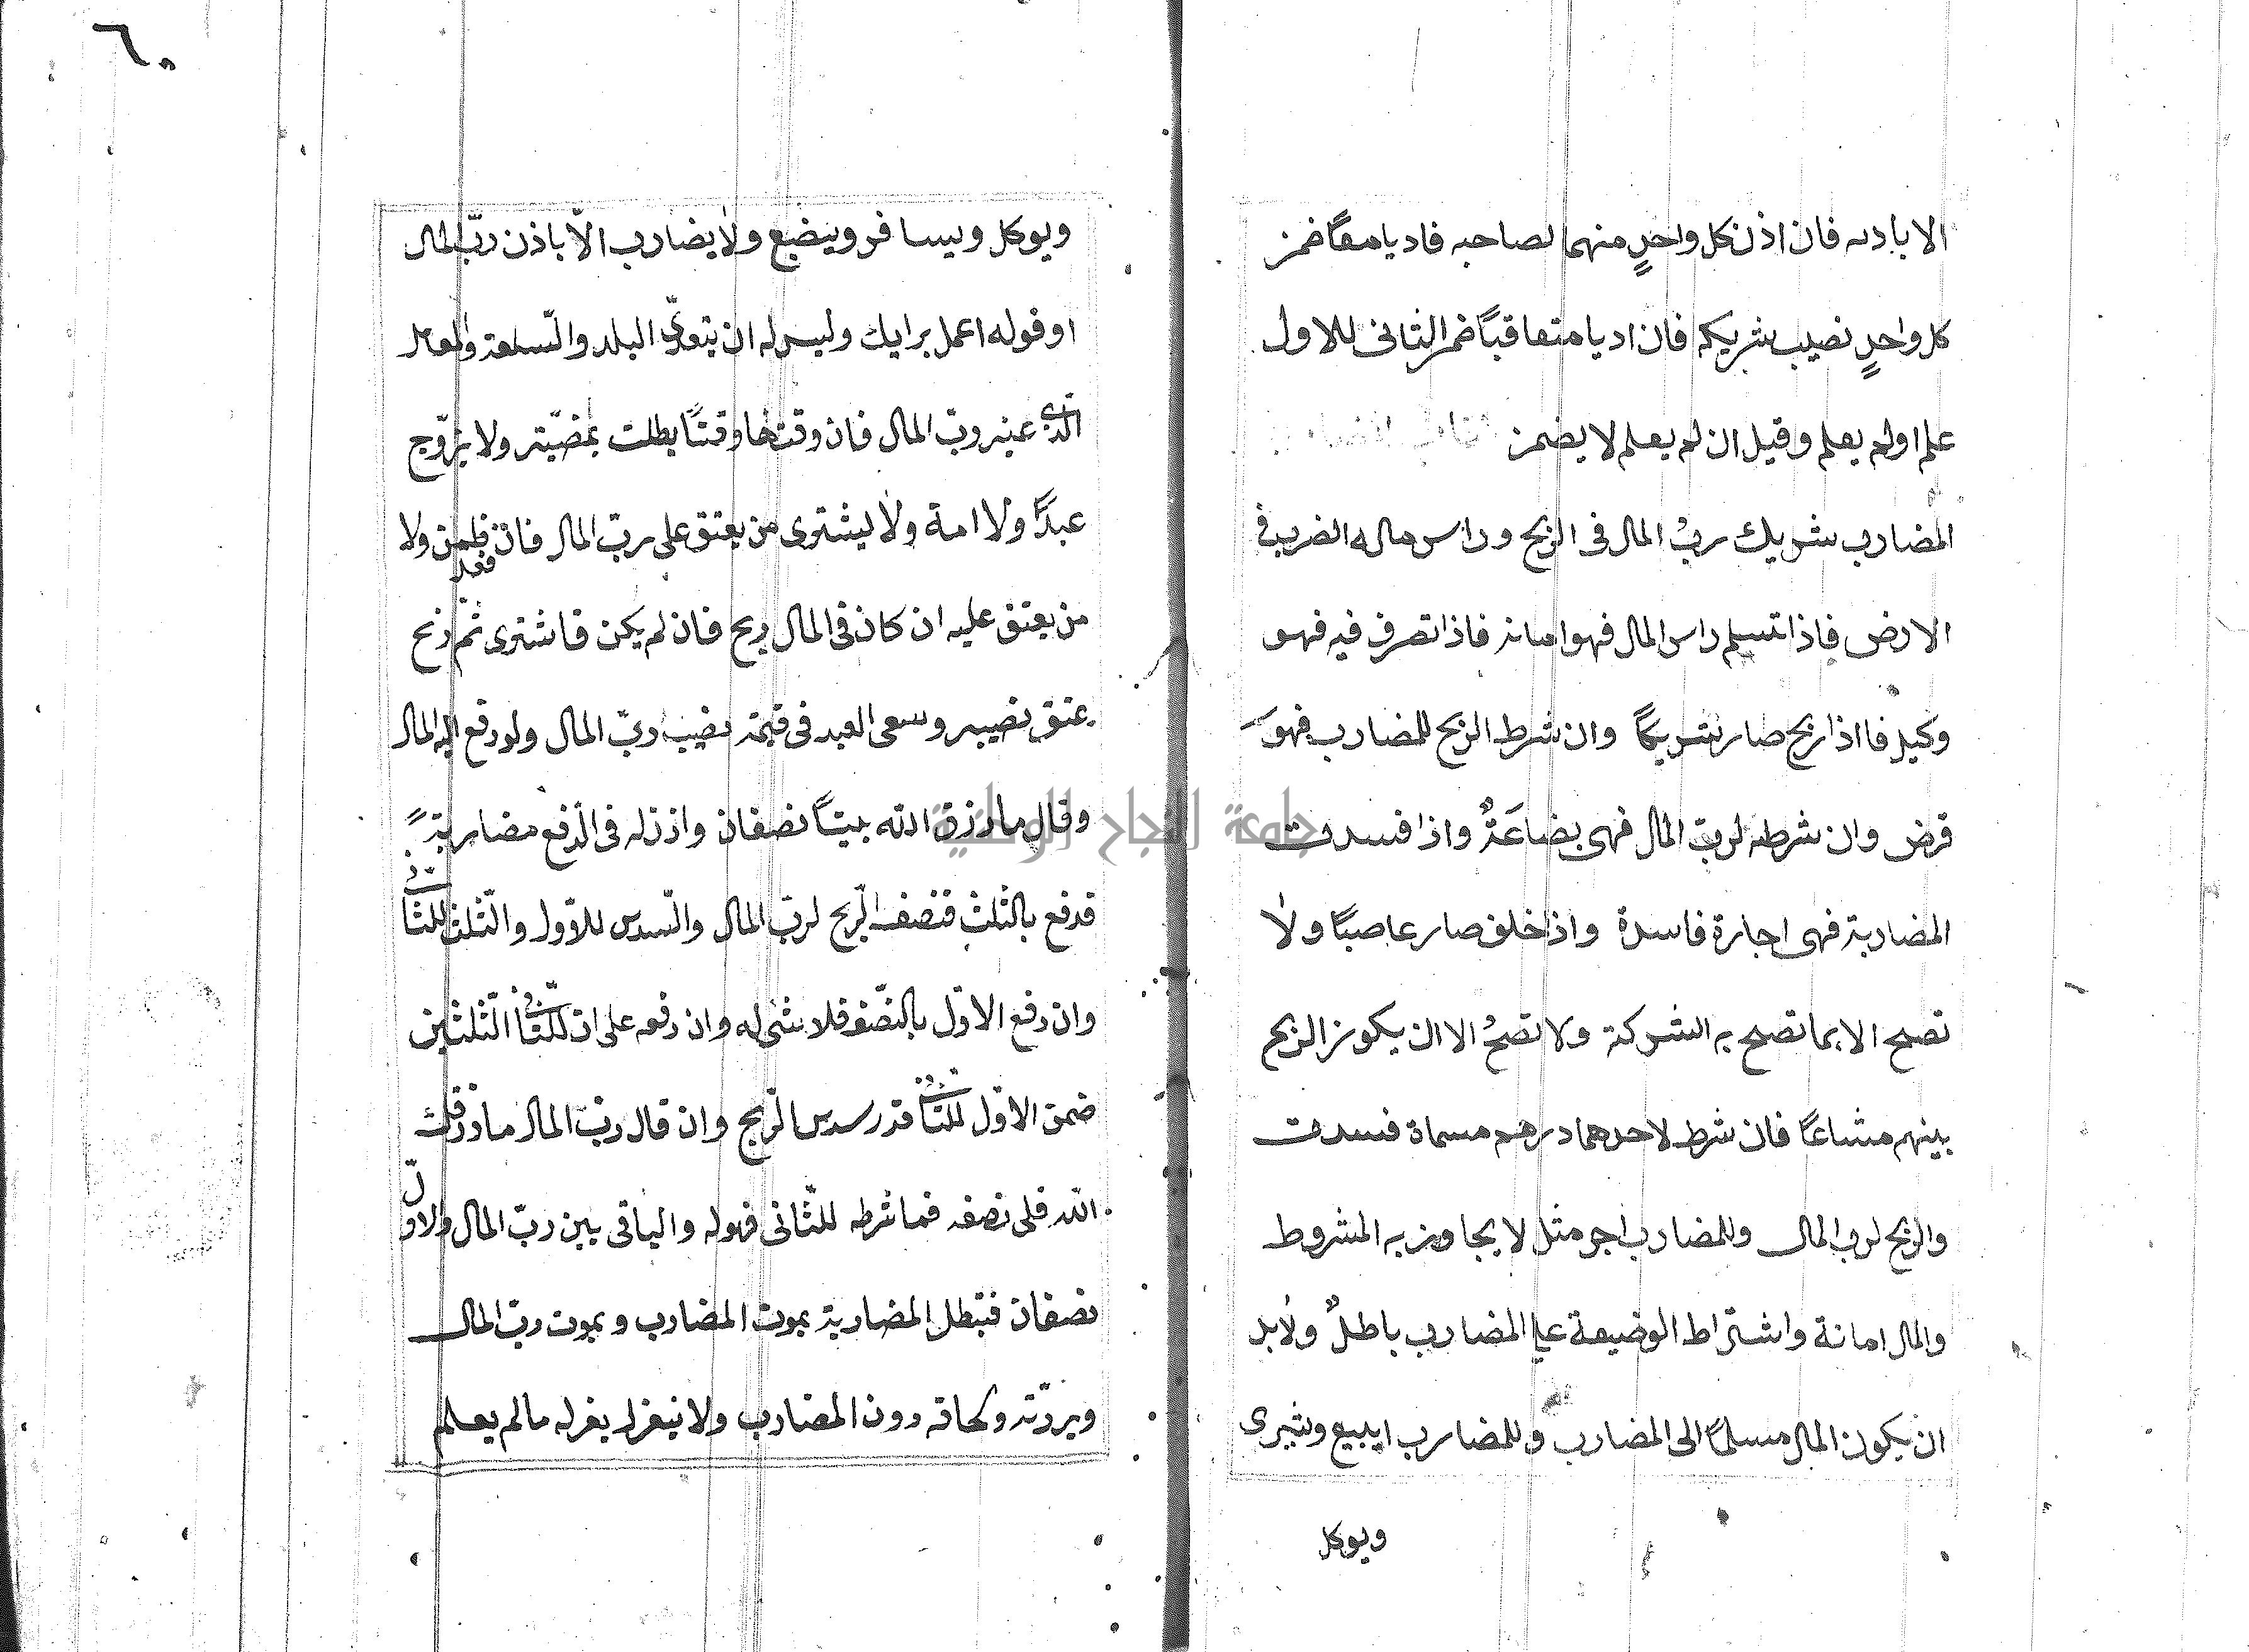 الا باذنه فان اذن كل واحدٍ منهما لصاحبه فاديا معًا ضمن
كل واحدٍ نصيب شريكه فان اديا متعاقبًا ضمن الثانى للاول
علم اولم يعلم وقيل ان لم يعلم لا يضمن
المضارب شريك ربُ المال فى الربح وراس ماله الضرب فى
الارض فاذا تسلم راس المال فهو امانة فاذا تصرف فيه فهو
وكيل فااذا ربح صار شريكًا وان شرط الربح للمضارب فهوَ
قرض وان شرطه لرب المال فهى بضاعَةٌ واذا فسدت
المضاربة فهى اجارة فاسدة واذا خلف صار عاصبًا ولا
تصح الا بما تصح به الشركة ولا تصحُ الا ان يكون الربح
بينهم مشاعًا فان شرط لاحدهما درهم مسماة فسدت
والربح لرب المال وللمضارب اجر مثل لا يجاوز به المشروط
والمال امانة واشتراط الوضيعة على المضارب باطلٌ ولابد
ان يكون المال مسلمًا الى المضارب وللمضارب ايبيع وشيرى
ويوكل
٦٠
ويوكل ويسافر ويبضع ولا يضارب الّا باذن ربّ المال
او قوله اعمل برايك وليس له ان يتعدّى البلد والسّلعة والمعامل
الّذى عينه ربّ المال فان وقت لها وقتًا بطلت بمضيّته ولا يزوّج
عبدًا ولا امة ولا ليشترى من يعتق على ربّ المال فان فعل ضمن ولا
من يعتق عليه ان كان فى المال ربح فان لم يكن فاشترى ثمّ ربح
عتق نصيبه وسعى العبد فى قيمة نصيب ربّ المال ولو دفع اليه المال
وقال ما رزق الله بيتًا نصفان واذن له فى الدّفع مضاربةً
فدفع بالثلث فنصف الرّبح لربّ المال والسّدس للاوّل والثّلث للثّانى
وان دفع الاوّل بالنّصف فلا شئ له وان دفعه على ان للثّانى الثّلثين
ضمن الاوّل للثّانى قدر سدس الرّبح وان قال ربّ المال ما رزقك
الله فلى نصفه فما شرطه للثّانى فهو له والباقى بين ربّ المال والاوّل
نصفان فتبطل المضاربة بموت المضارب وبموت ربّ المال
وبردّته ولحاقه دون المضارب ولا ينعزل بعزله مالم يعلم
جامعة النجاح الوطنية